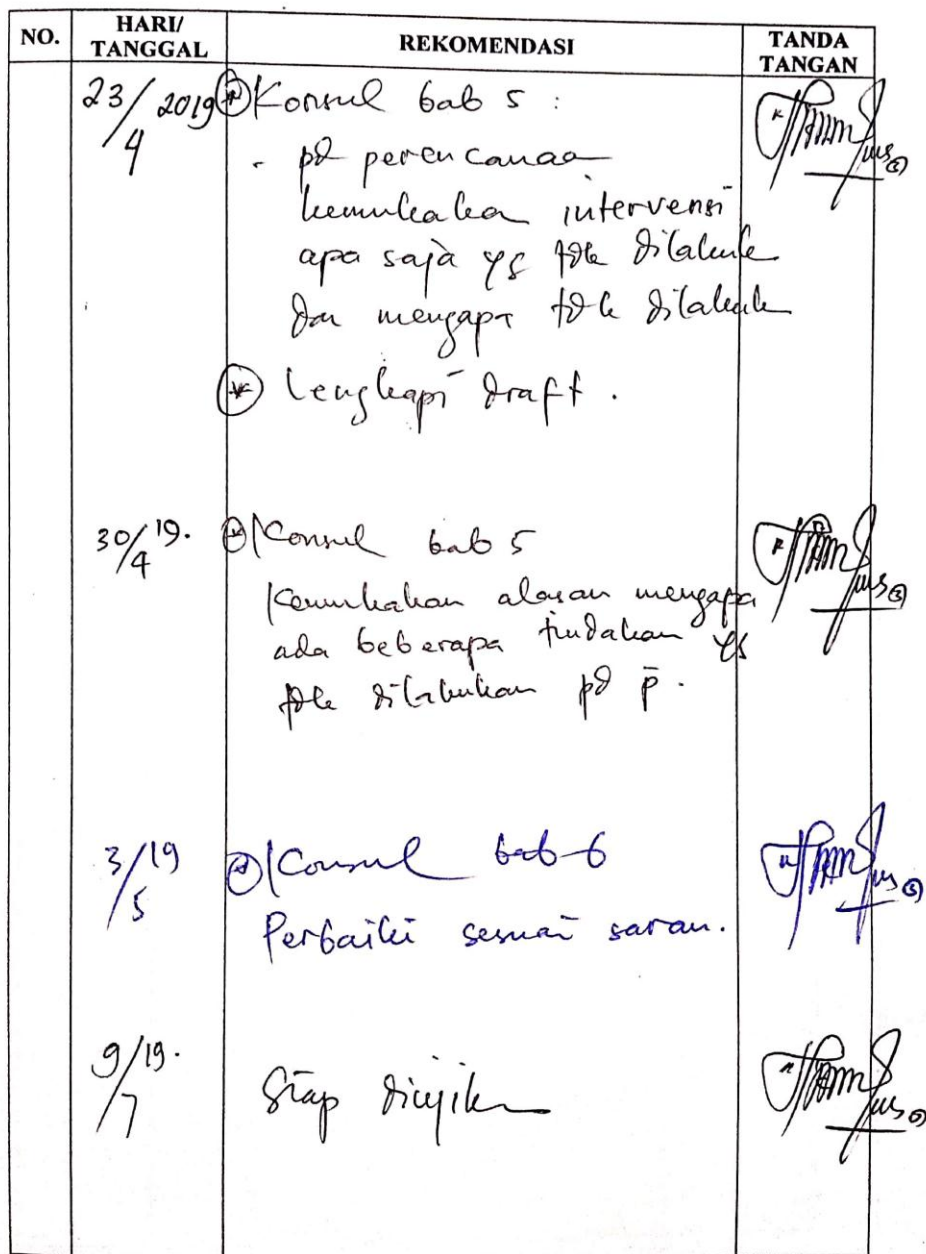 NO.
HARI/
TANGGAL
REKOMENDASI
TANDA
TANGAN
23/4 2019
Konsul bab 5 :
- pd perencanaa
kemukaka intervensi
apa saja yg tdk dilakuk
dan mengapa tdk dilakuk
Lengkapi draft .
30/4 19.
Konsul bab 5
Kemukakan alasan mengapa
ada beberapa tindakan yg
tdk dilakukan pd p̄ .
3/5 19
Konsul bab 6
Perbaiki sesuai saran.
9/7 19.
Siap diujikn